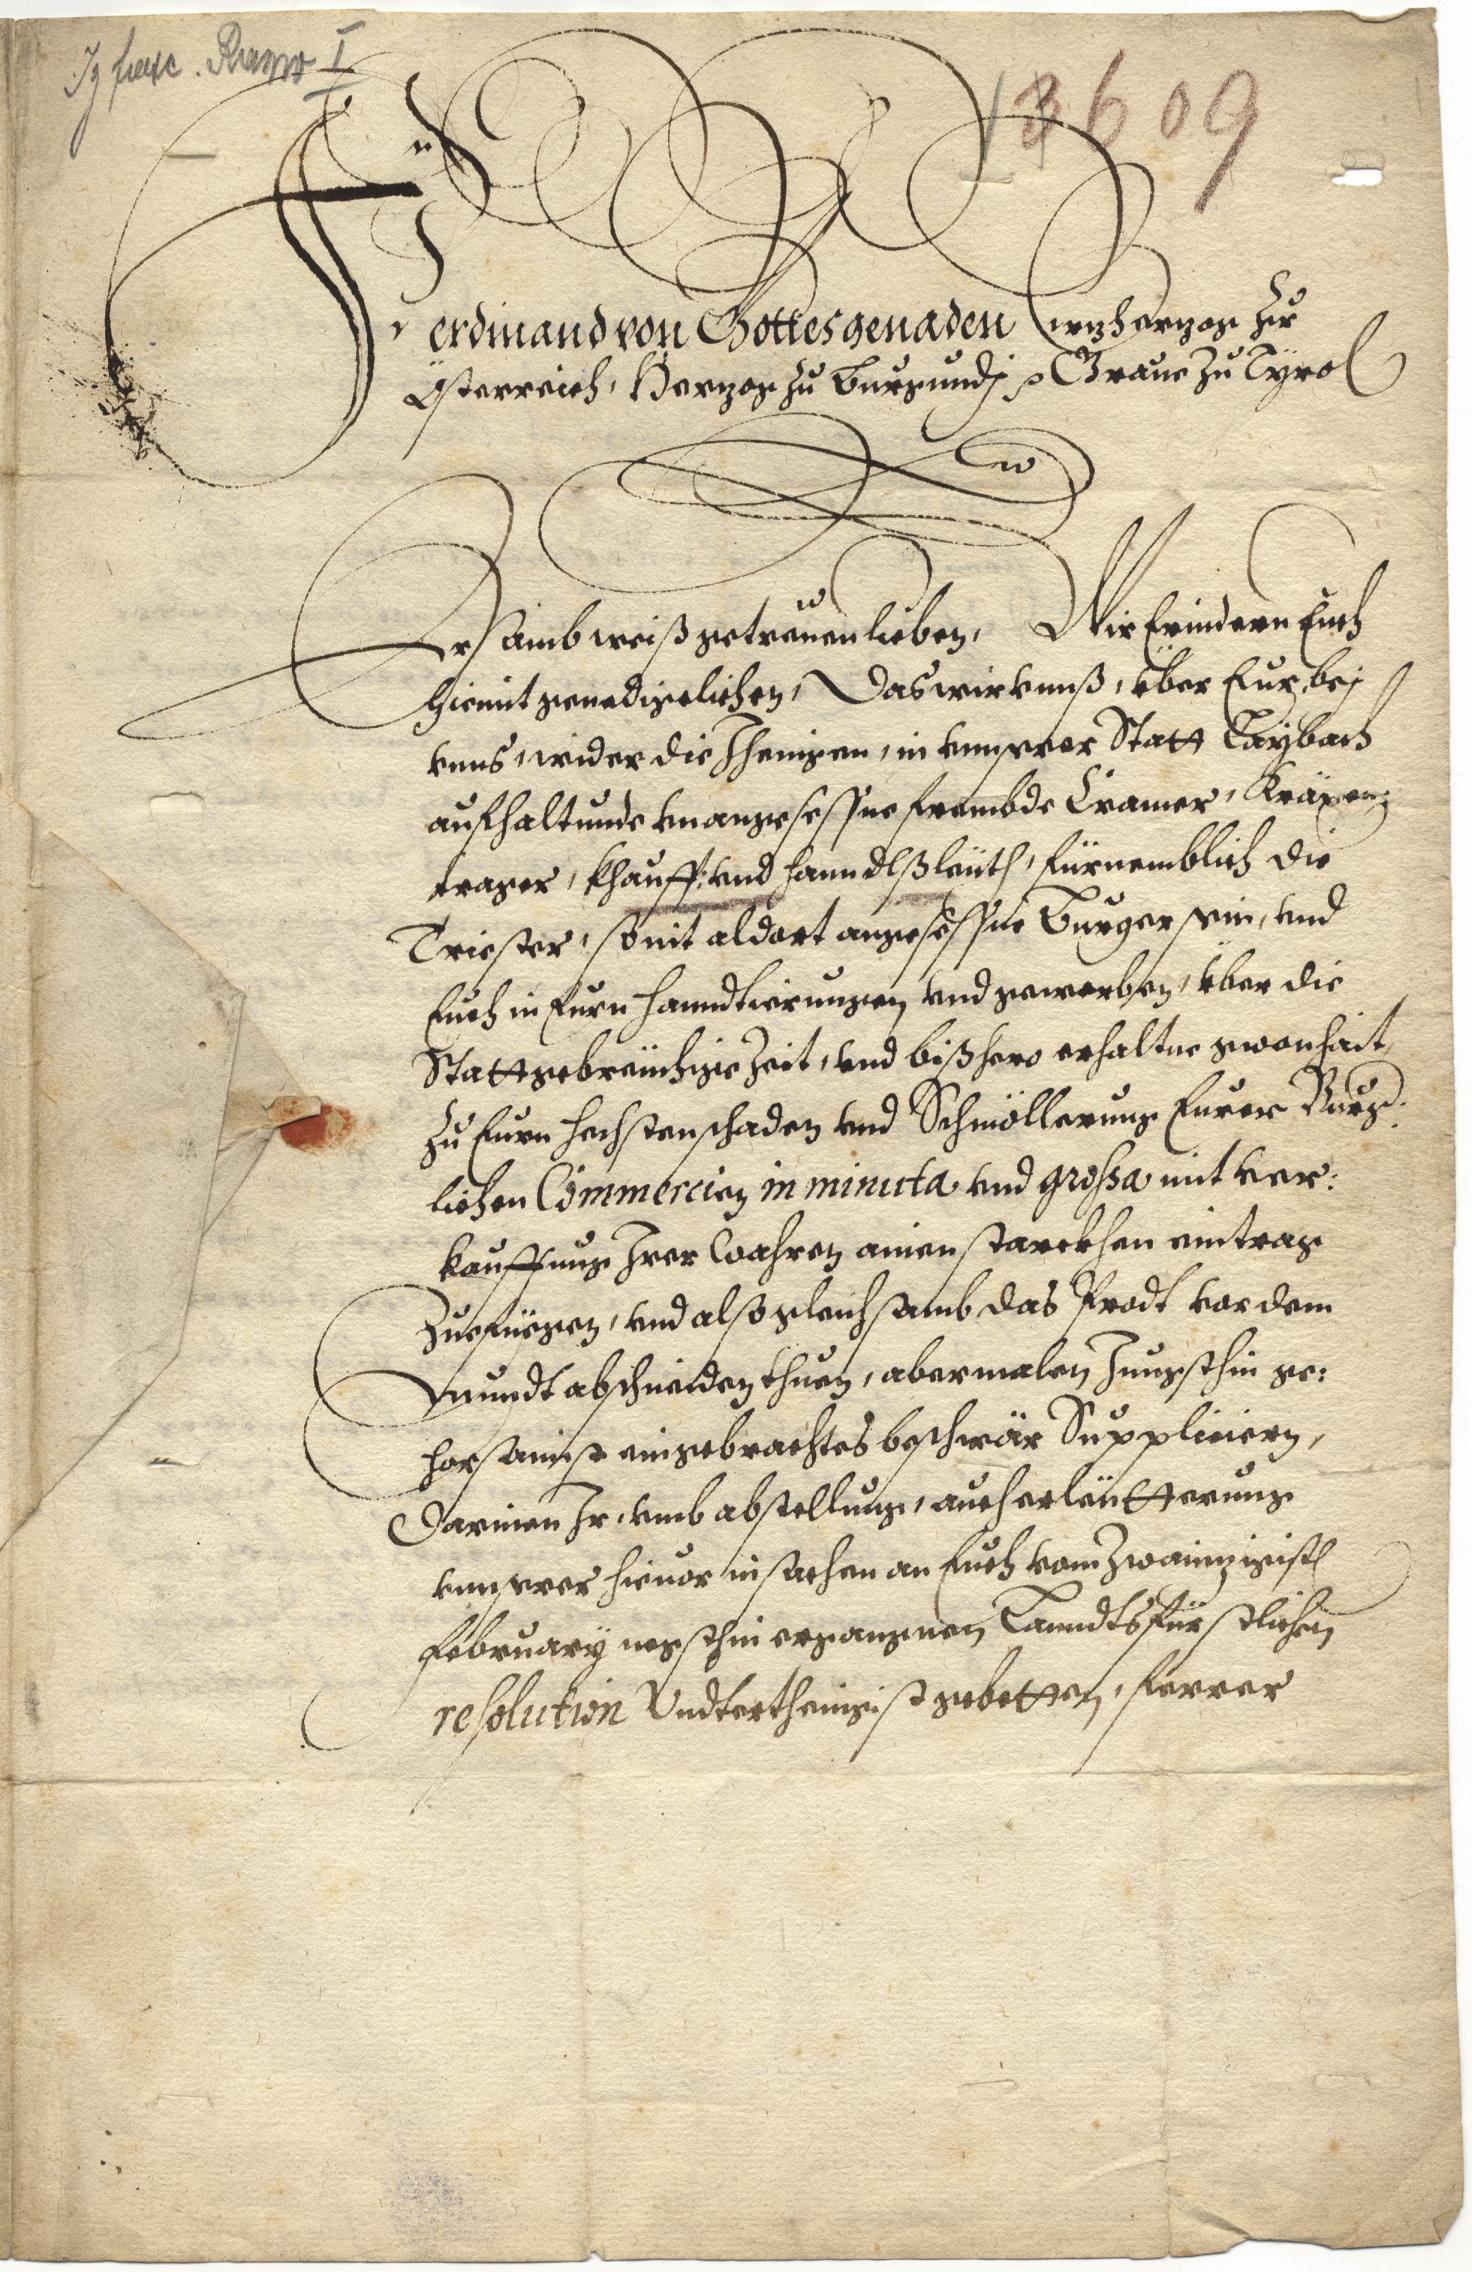 I
1609
Ferdinand von Gottes genaden Ertzherzog Zu
Össterreich, Herzog Zu Burgundj p Graue Zu Tyrol
Ersamb weiß getreuen lieben, Wir Erindern Euch
hiemit genedigclichen, Das wir vnnß, über Eur, bej
vnns, wider die Jhenigen, in vnnserer Statt Laybach
aufhaltunde vnangesessne frembde Cramer, Kräxen:
trager, Khauff: vnd hanndlßleüth, fürnemblich die
Triester, so nit aldort angesessne Burger sein, vnd
Euch in Eurn hanndtierungen vnd gewerben, über die
Statt gebreüchige Zeit, vnd bißhero erhaltne gwonhait,
Zu Eurn hechsten schaden vnd Schmöllerung Eurer Burg:
lichen Commercien in minuta vnd grossa mit ver:
kauffung Irer Wahren ainen starckhen eintrag
Zuefüegen, vnd also gleichsamb das Prodt vor dem
Mundt abschneiden thuen, abermalen Jungsthin ge:
horsamist eingebrachtes beschwär Suppliciern,
Darinen Ir, vmb abstellung, auch erleütterung
vnnserer hieuor in sachen an Euch vom Zwainzigist
February negsthin ergangnen Lanndtsfürstlichen
resolution Vndterthenigist gebetten, ferrer